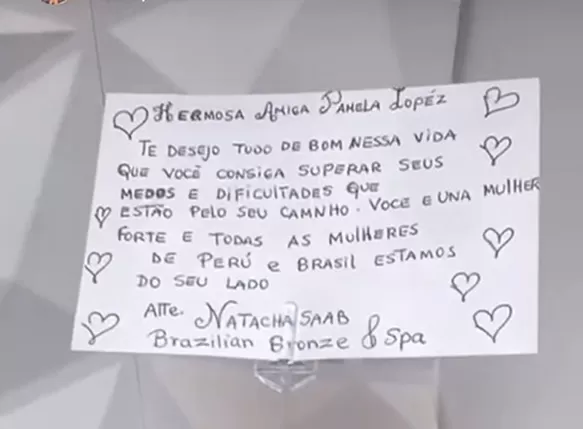 HERMOSA AMIGA PAMELA LOPÉZ
TE DESEJO TUDO DE BOM NESSA VIDA
QUE VOCÊ CONSIGA SUPERAR SEUS
MEDOS E DIFICULTADES QUE
ESTÃO PELO SEU CAMNHO. VOCE E UNA MULHER
FORTE E TODAS AS MULHERES
DE PERÚ e BRASIL ESTAMOS
DO SEU LADO
ATTE. NATACHA SAAB
Brazilian Bronze & Spa